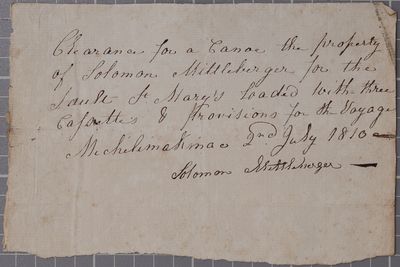 Clearance for a Canoe the property
of Solomon Mittleberger for the
Sault St Mary's loaded with three
Cassettes & provisions for the Voyage
Michilimakinac 2nd July 1810
Solomon Mittleberger